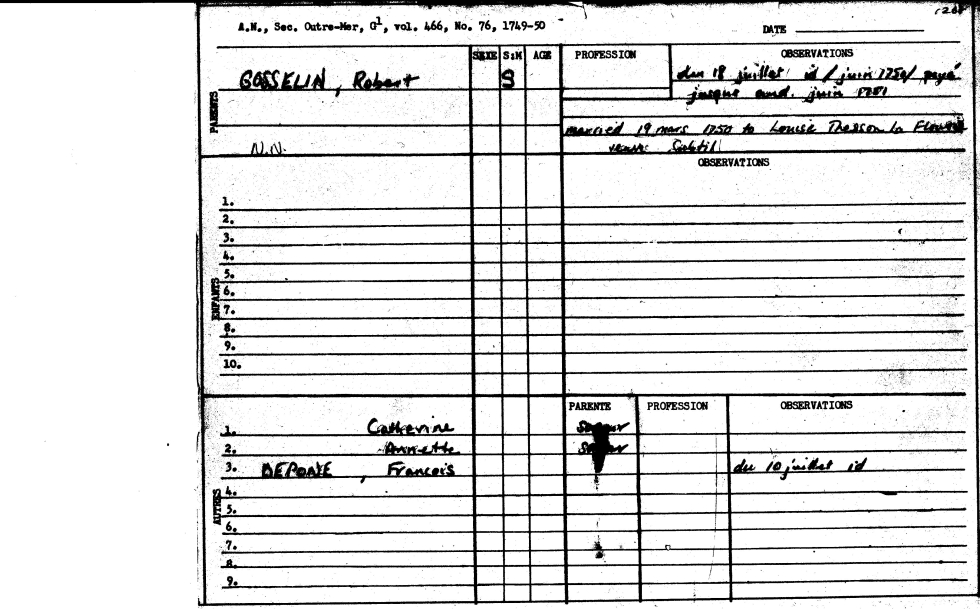 1208
A.N., Sec. Outre-Mer, G1, vol. 466, No. 76, 1749-50
DATE
SEXE S:M AGE PROFESSION OBSERVATIONS
PARENTS
GOSSELIN, Robert S du 18 juillet id / juin 1750 / payé
jusque juin 1751
married 19 mars 1750 to Louise
N.N. veuve Subtil
OBSERVATIONS
ENFANTS
1.
2.
3.
4.
5.
6.
7.
8.
9.
10.
PARENTE PROFESSION OBSERVATIONS
AUTRES
1. Catherine Soeur
2. Annette Soeur
3. , Francois du 10 juillet id
4.
5.
6.
7.
8.
9.